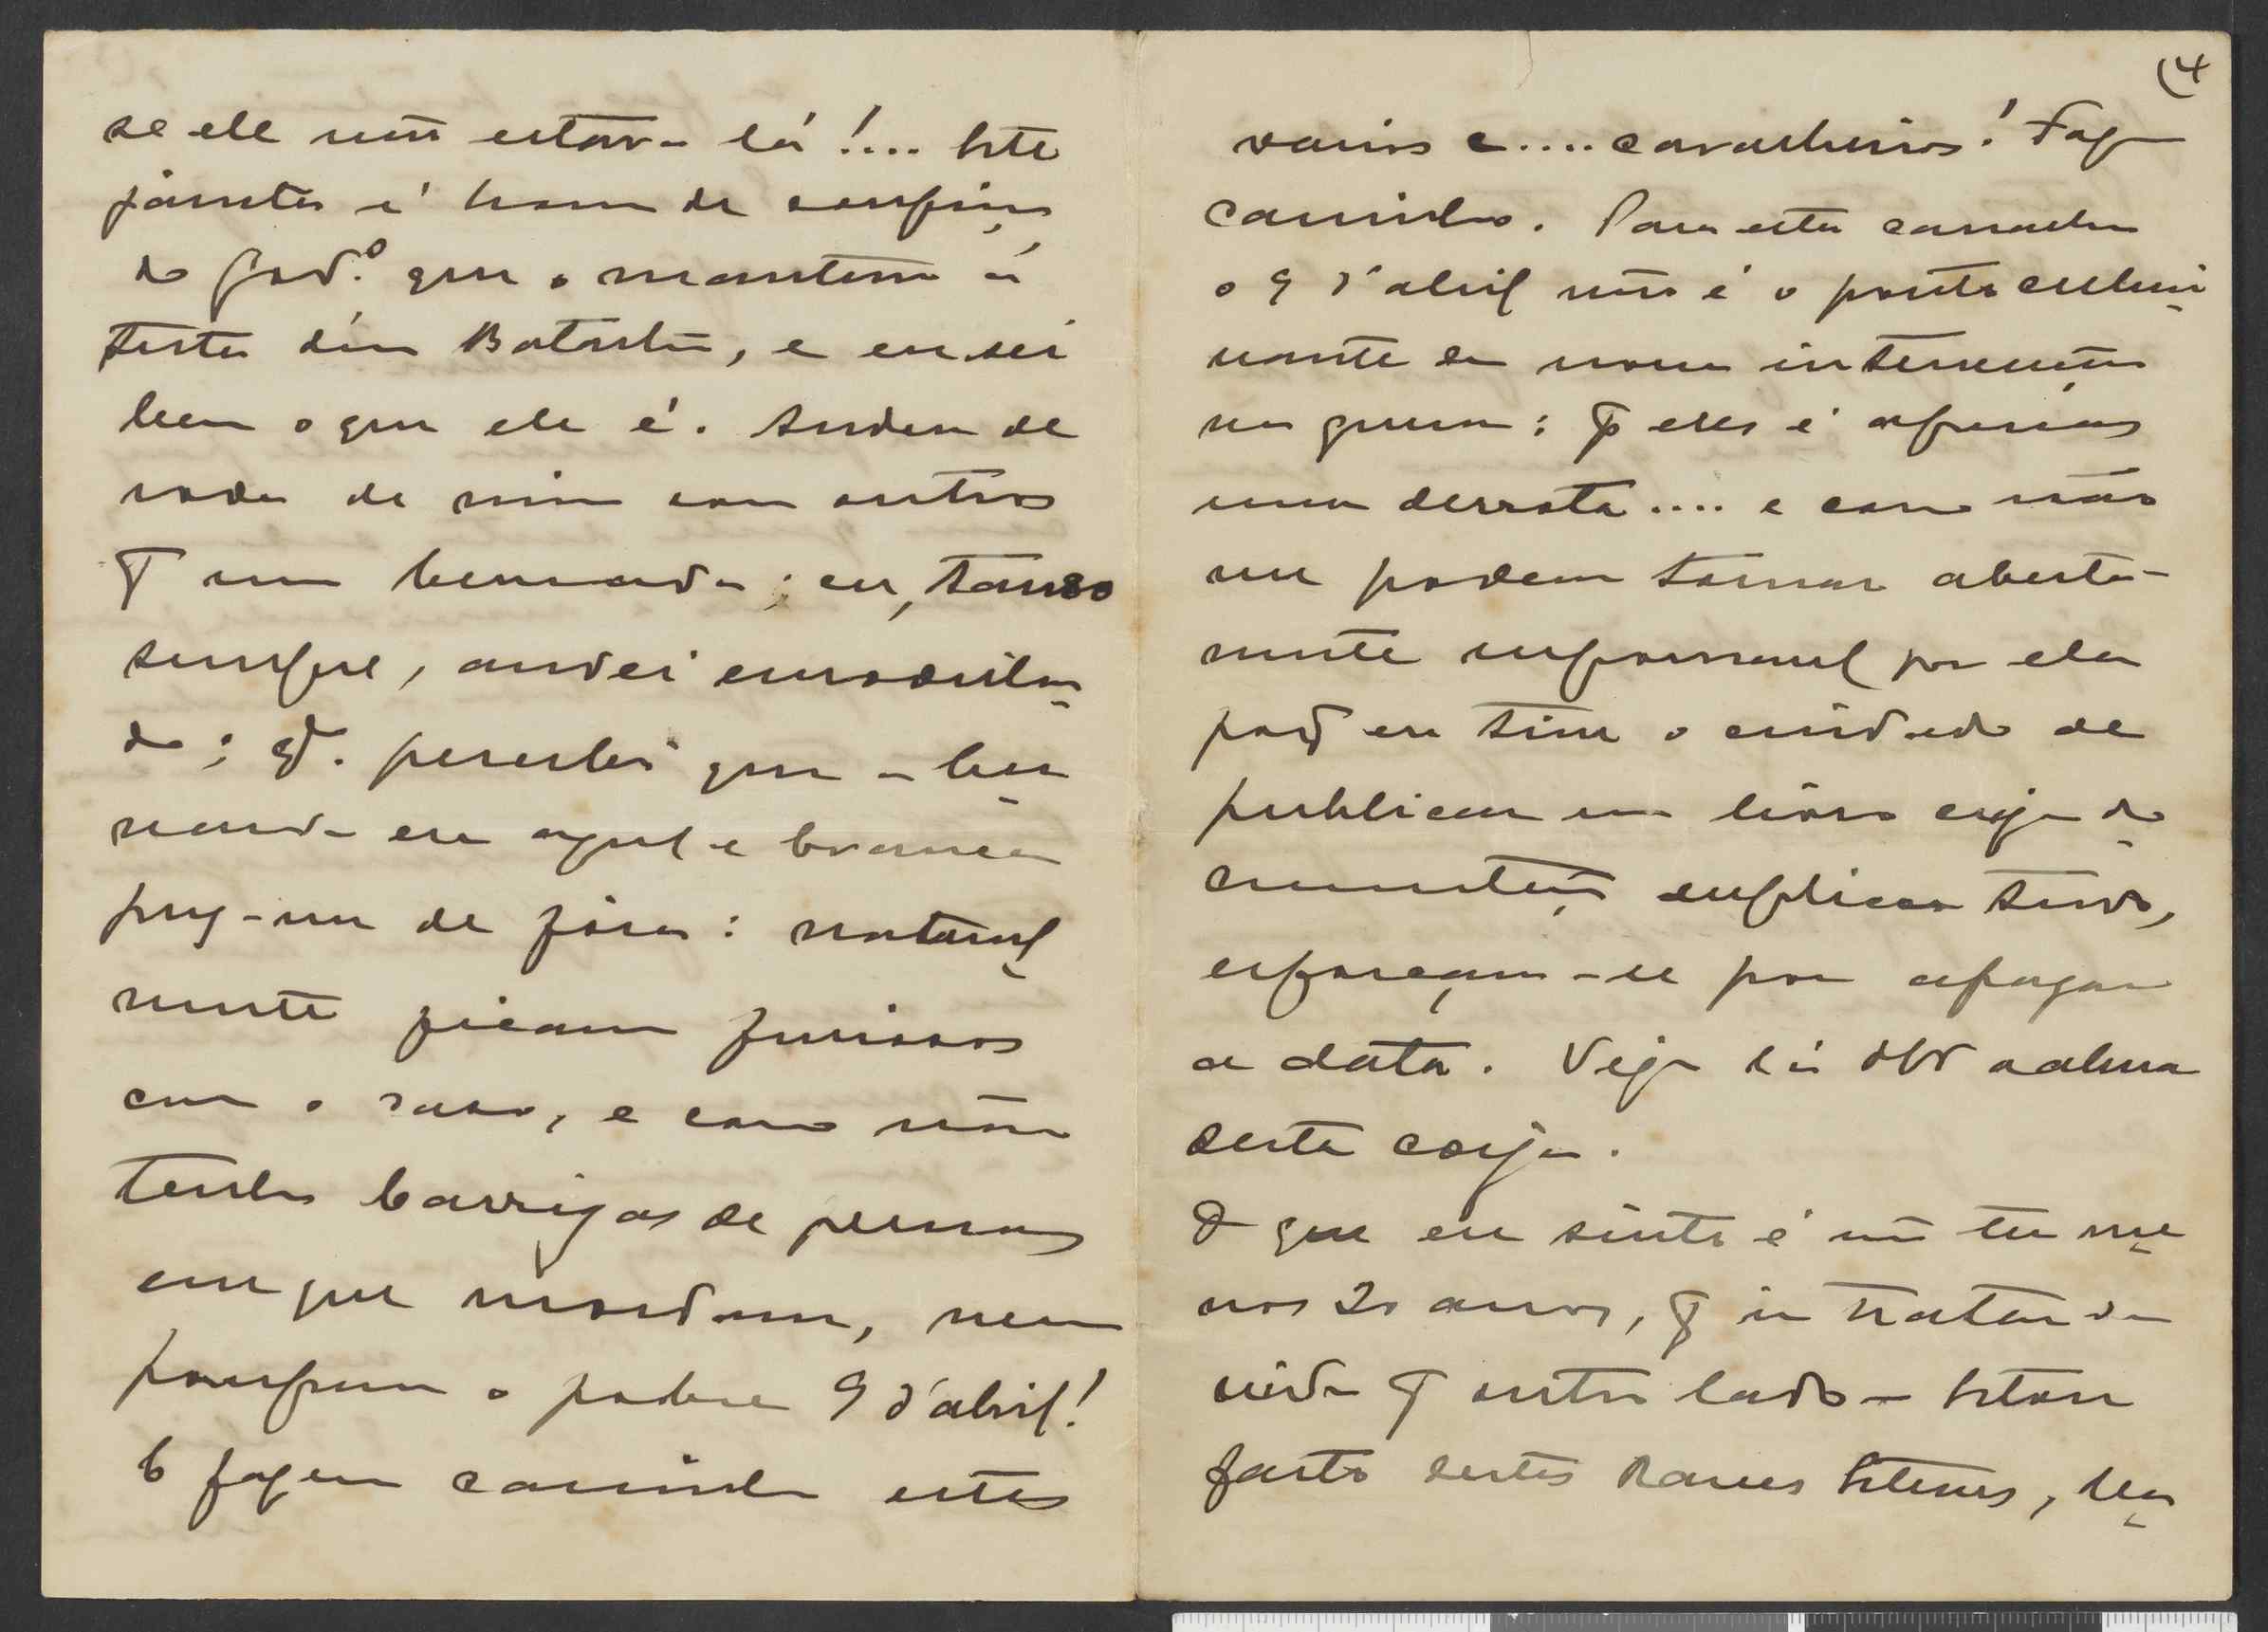 se ele não estava lá!.... Este
janota é homem de confiança
do Gov.º que o mantem á
testa dum Batalhão, e eu sei
bem o que ele é. Andou de
roda de mim com outros
p.ª uma bernarda; eu, tanso
sempre, andei enrodilha-
do; qd. percebi que a ber-
narda era azul e branca
puz-me de fóra: natural-
mente ficam furiosos
com o caso, e como não
tenho barrigas de pernas
em que mordam, nem
poupam o pobre 9 d'abril!
E fazem caminho estes
(4
varios e.... cavalheiros! Faz
caminho. Para esta canalha
o 9 d'abril não é o ponto culmi-
nante da nossa intervenção
na guerra: p.ª eles é apenas
uma derrota.... e como não
me podem tornar aberta-
mente responsavel por ela
porq eu tive o cuidado de
publicar um livro cuja do-
cumentação explica tudo,
esforçam-se por apagar
a data. Veja lá a alma
desta corja.
O que eu sinto é não ter me-
nos 20 anos, p.ª ir tratar da
vida p.ª outro lado – Estou
farto destes